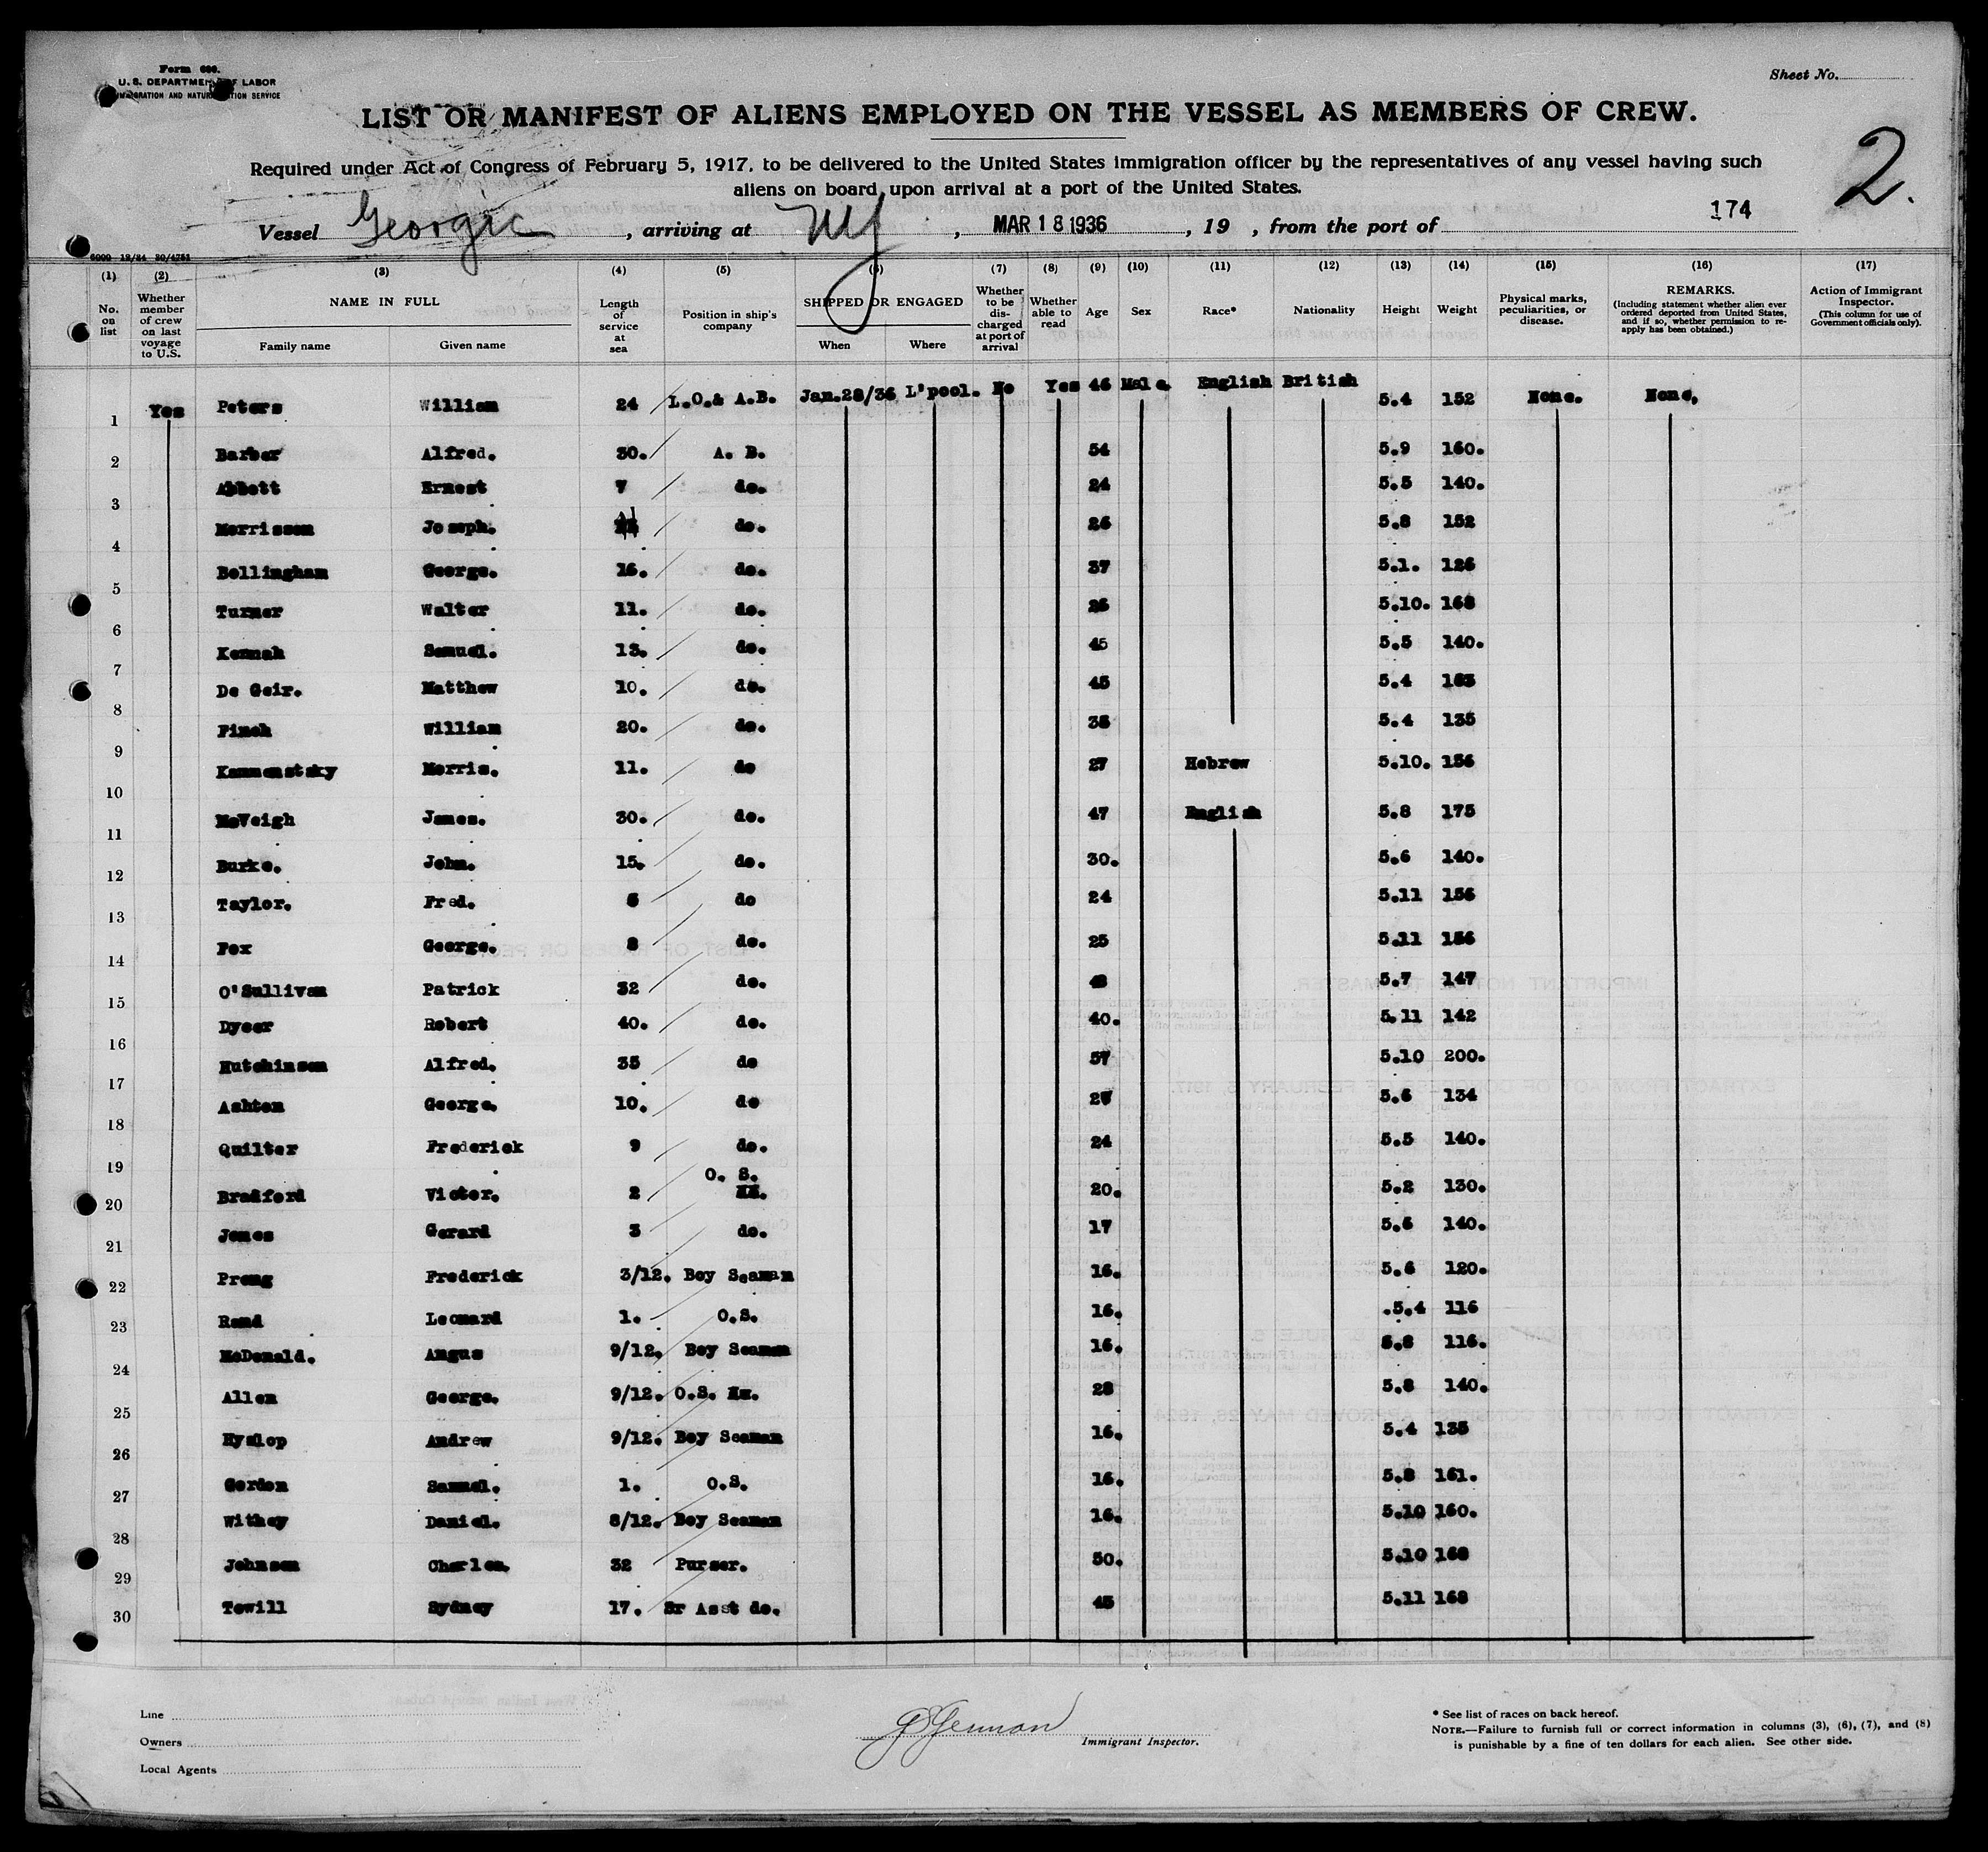 Form 680.
U. S. DEPARTMENT OF LABOR
IMMIGRATION AND NATURALIZATION SERVICE
Sheet No.
LIST OR MANIFEST OF ALIENS EMPLOYED ON THE VESSEL AS MEMBERS OF CREW.
2.
Required under Act of Congress of February 5, 1917, to be delivered to the United States immigration officer by the representatives of any vessel having such
aliens on board upon arrival at a port of the United States.
174
Vessel Georgic, arriving at NY, MAR 18 1936, 19 , from the port of
(1) (2) (3) (4) (5) (6) (7) (8) (9) (10) (11) (12) (13) (14) (15) (16) (17)
No. on list
Whether member of crew on last voyage to U.S.
NAME IN FULL
Family name
Given name
Length of service at sea
Position in ship's company
SHIPPED OR ENGAGED
When
Where
Whether to be discharged at port of arrival
Whether able to read
Age
Sex
Race*
Nationality
Height
Weight
Physical marks, peculiarities, or disease.
REMARKS.
(Including statement whether alien ever ordered deported from United States, and if so, whether permission to reapply has been obtained.)
Action of Immigrant Inspector.
(This column for use of Government officials only).
1 Yes Peters William 24 L.O.& A.B. Jan.28/36 L'pool. No Yes 46 Male English British 5.4 152 None. None.
2 Barber Alfred. 30. A. B. 54 5.9 160.
3 Abbott Ernest 7 do. 24 5.5 140.
4 Morrisson Joseph. do. 26 5.8 152
5 Bellingham George. 16. do. 37 5.1. 126
6 Turner Walter 11. do. 26 5.10. 168
7 Kennah Samuel. 13. do. 45 5.5 140.
8 De Geir. Matthew 10. do. 45 5.4 163
9 Finch William 20. do. 38 5.4 135
10 Kammenstsky Morris. 11. do 27 Hebrew 5.10. 156
11 McVeigh James. 30. do. 47 English 5.8 175
12 Burke. John. 15. do. 30. 5.6 140.
13 Taylor. Fred. 6 do 24 5.11 156
14 Fox George. 8 do. 25 5.11 156
15 O'Sullivan Patrick 32 do. 5.7 147
16 Dyeer Robert 40. do. 40. 5.11 142
17 Hutchinson Alfred. 35 do 57 5.10 200.
18 Ashton George. 10. do 5.6 134
19 Quilter Frederick 9 do. 24 5.5 140.
20 Bradford Victor. 2 O. S. 20. 5.2 130.
21 Jones Gerard 3 do. 17 5.6 140.
22 Prong Frederick 3/12. Boy Seaman 16. 5.6 120.
23 Rand Leonard 1. O.S. 16. .5.4 116
24 McDonald. Angus 9/12. Boy Seaman 16. 5.8 116.
25 Allen George. 9/12. O.S. 28 5.8 140.
26 Hyslop Andrew 9/12. Boy Seaman 16. 5.4 135
27 Gordon Samuel. 1. O.S. 16. 5.8 161.
28 Withey Daniel. 8/12. Boy Seaman 16. 5.10 160.
29 Johnson Charles. 32 Purser. 50. 5.10 168
30 Towill Sydney 17. Sr Asst do. 45 5.11 168
Line
Owners
Local Agents
Immigrant Inspector.
* See list of races on back hereof.
NOTE.—Failure to furnish full or correct information in columns (3), (6), (7), and (8)
is punishable by a fine of ten dollars for each alien. See other side.